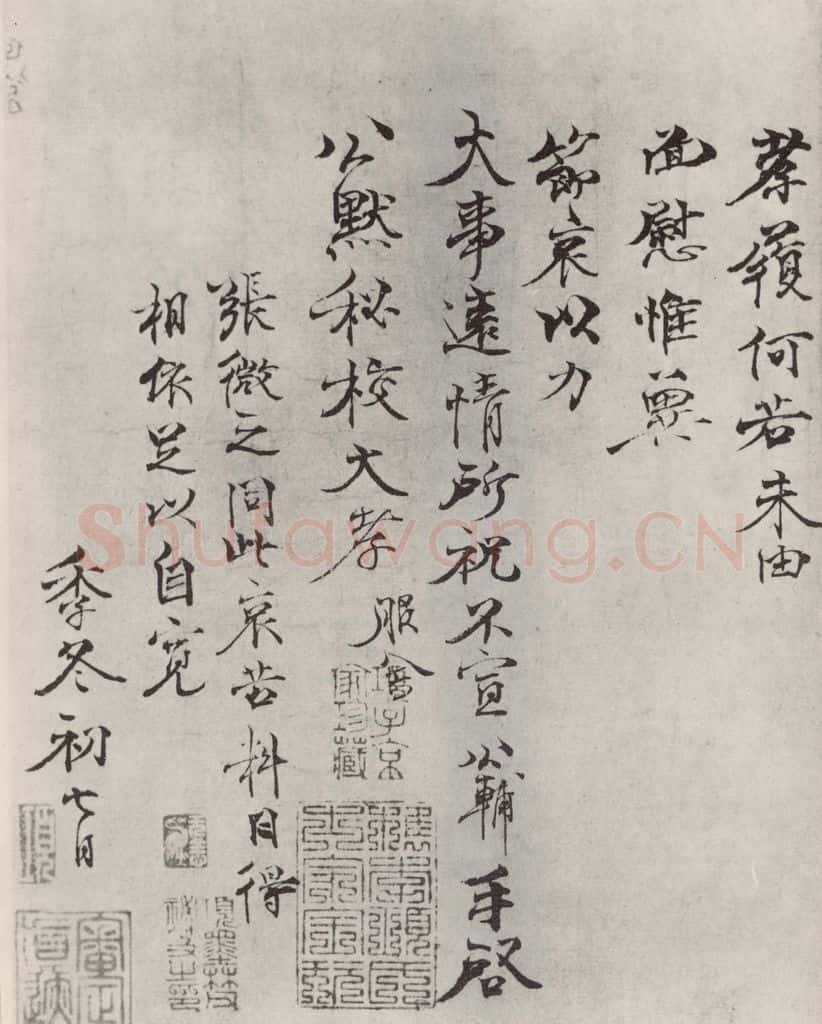 孝履何若未由
面慰惟兾
節哀以力
大事遠情所祝不宣 公輔手啓
公黙秘校大孝 服合
張微之同此哀苦料日得
相依足以自寛
季冬初七日
Shufawang.CN
子京
珍藏